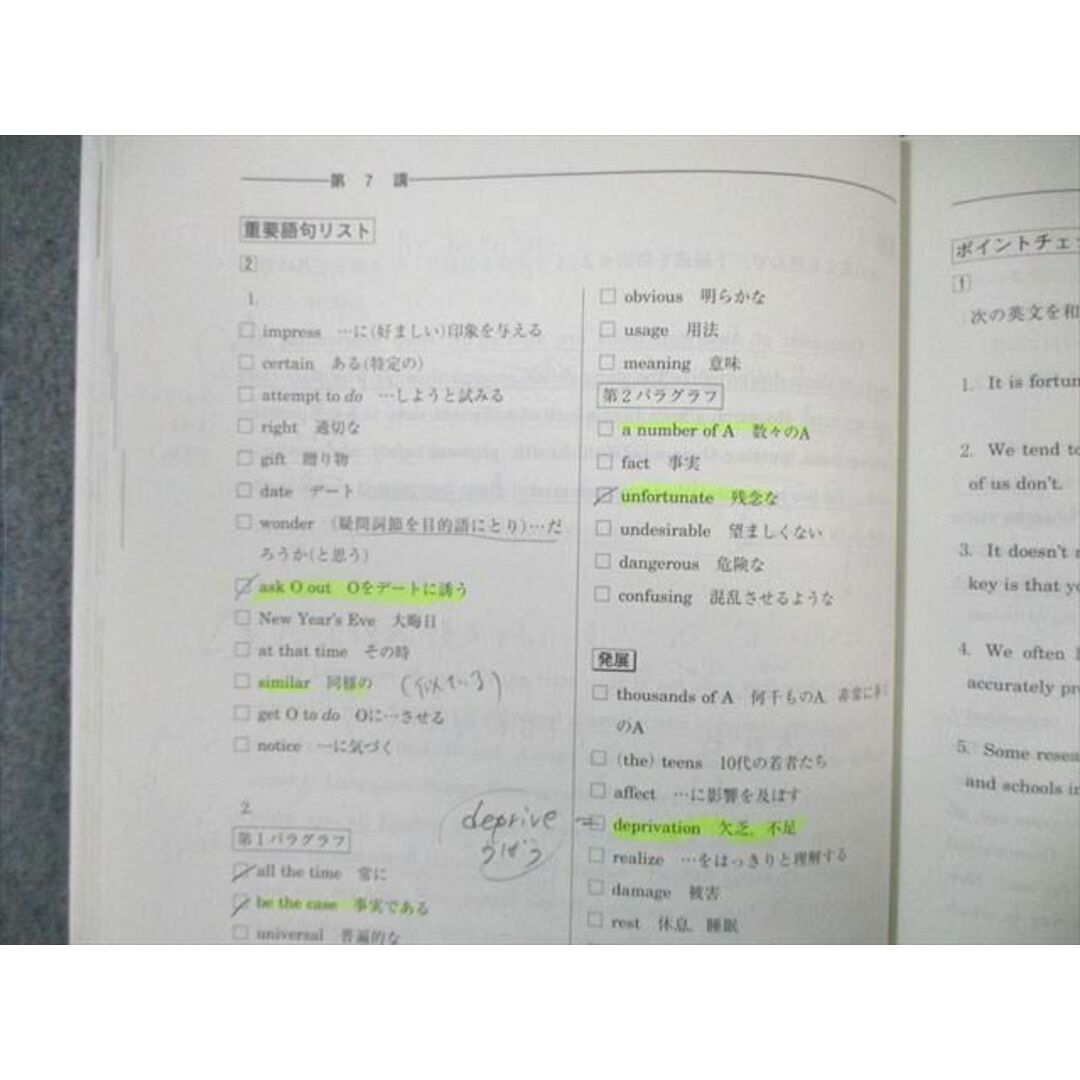 第 7 講
重要語句リスト
2
1.
□ impress …に(好ましい)印象を与える
□ certain ある(特定の)
□ attempt to do …しようと試みる
□ right 適切な
□ gift 贈り物
□ date デート
□ wonder (疑問詞節を目的語にとり)…だ
ろうか(と思う)
□ ask O out Oをデートに誘う
□ New Year's Eve 大晦日
□ at that time その時
□ similar 同様の (似ている)
□ get O to do Oに…させる
□ notice …に気づく
2.
第1パラグラフ
□ all the time 常に
□ be the case 事実である
□ universal 普遍的な
deprive
うばう
□ obvious 明らかな
□ usage 用法
□ meaning 意味
第2パラグラフ
□ a number of A 数々のA
□ fact 事実
□ unfortunate 残念な
□ undesirable 望ましくない
□ dangerous 危険な
□ confusing 混乱させるような
発展
□ thousands of A 何千ものA, 非常に多く
のA
□ (the) teens 10代の若者たち
□ affect …に影響を及ぼす
□ deprivation 欠乏, 不足
□ realize …をはっきりと理解する
□ damage 被害
□ rest 休息, 睡眠
ポイントチェッ
1
次の英文を和
1. It is fortun
2. We tend to
of us don't.
3. It doesn't
key is that yo
4. We often
accurately pr
5. Some resea
and schools in